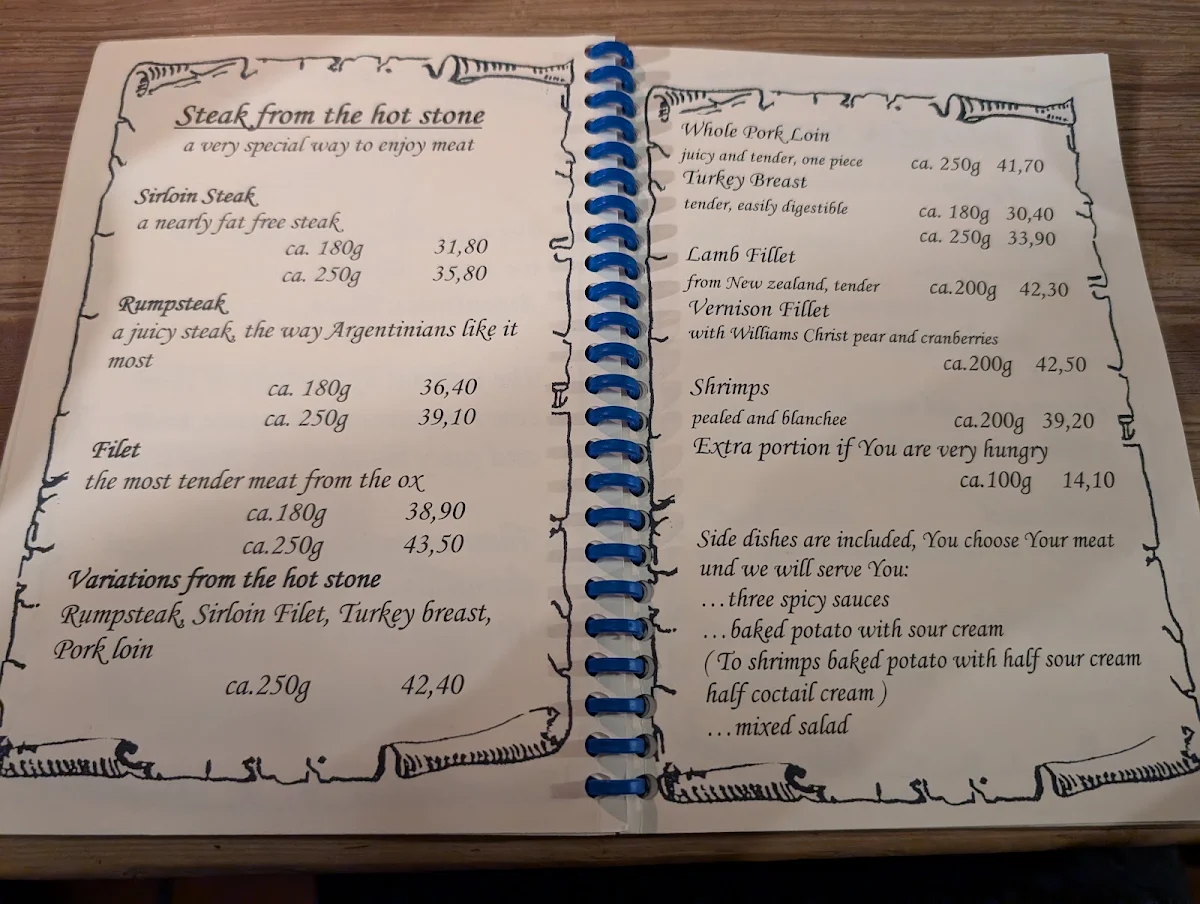 Steak from the hot stone
a very special way to enjoy meat
Sirloin Steak
a nearly fat free steak
ca. 180g 31,80
ca. 250g 35,80
Rumpsteak
a juicy steak, the way Argentinians like it
most
ca. 180g 36,40
ca. 250g 39,10
Filet
the most tender meat from the ox
ca.180g 38,90
ca.250g 43,50
Variations from the hot stone
Rumpsteak, Sirloin Filet, Turkey breast,
Pork loin
ca.250g 42,40
Whole Pork Loin
juicy and tender, one piece ca. 250g 41,70
Turkey Breast
tender, easily digestible ca. 180g 30,40
ca. 250g 33,90
Lamb Fillet
from New zealand, tender ca.200g 42,30
Vernison Fillet
with Williams Christ pear and cranberries
ca.200g 42,50
Shrimps
pealed and blanchee ca.200g 39,20
Extra portion if You are very hungry
ca.100g 14,10
Side dishes are included, You choose Your meat
und we will serve You:
...three spicy sauces
...baked potato with sour cream
( To shrimps baked potato with half sour cream
half coctail cream )
...mixed salad